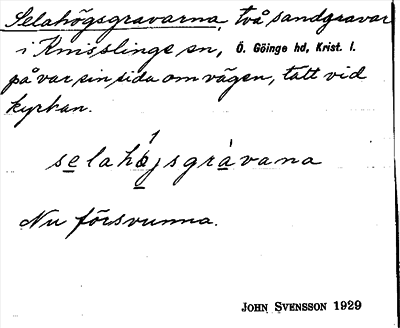 Selahögsgravarna, två sandgravar
i Knisslinge sn, Ö. Göinge hd, Krist. l.
på var sin sida om vägen, tätt vid
kyrkan.
selahøjsgravana
Nu försvunna.
JOHN SVENSSON 1929